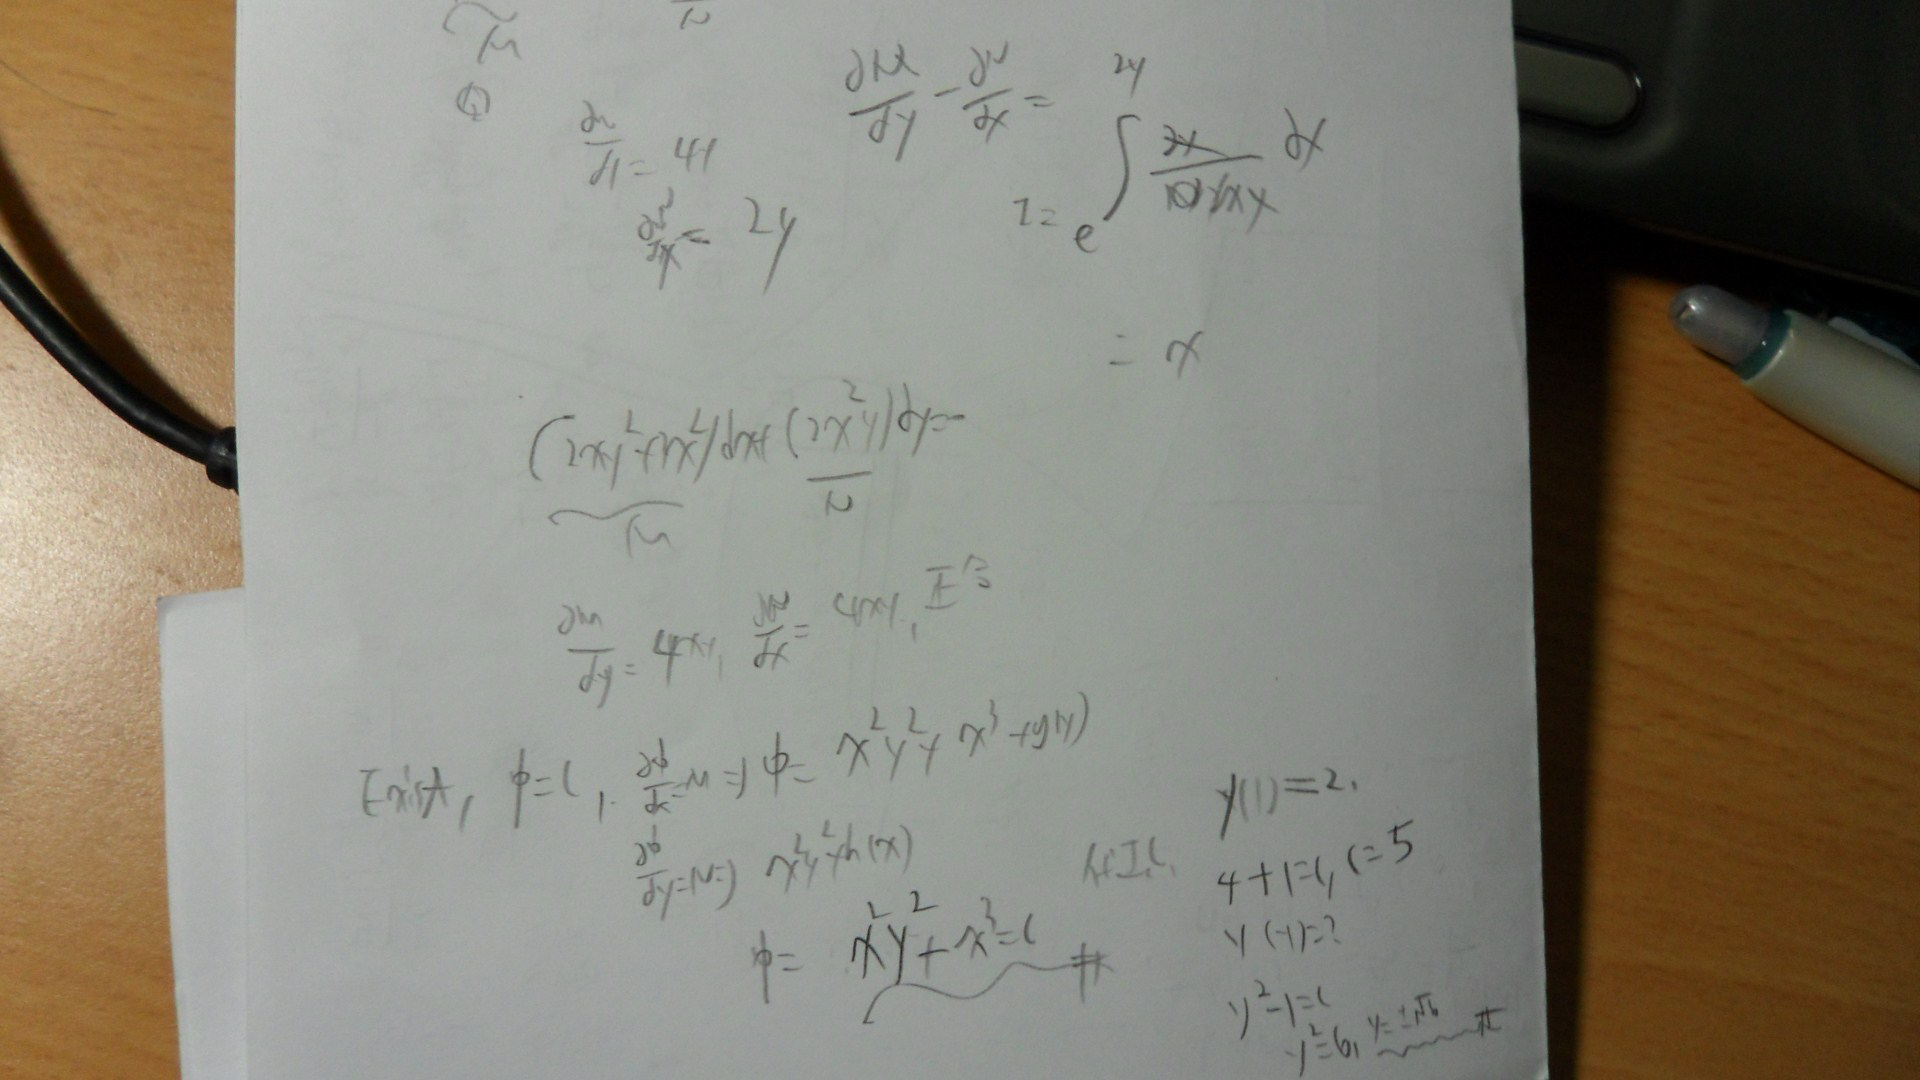 M
N
①
∂M/∂y = 4y
∂N/∂x = 2y
∂M/∂y - ∂N/∂x = 2y
I = e^∫ dx
= x
(2xy²+3x²)dx+(2x²y)dy=
M
N
∂M/∂y = 4xy, ∂N/∂x = 4xy,
Exist, φ=C, ∂φ/∂x=M ⇒ φ= x²y²+x³+g(y)
∂φ/∂y=N ⇒ x²y²+h(x)
φ= x²y²+x³=C #
I.C.
y(1)=2.
4+1=C, C=5
y(-1)=?
y²-1=C
y²=6, y=±√6 #